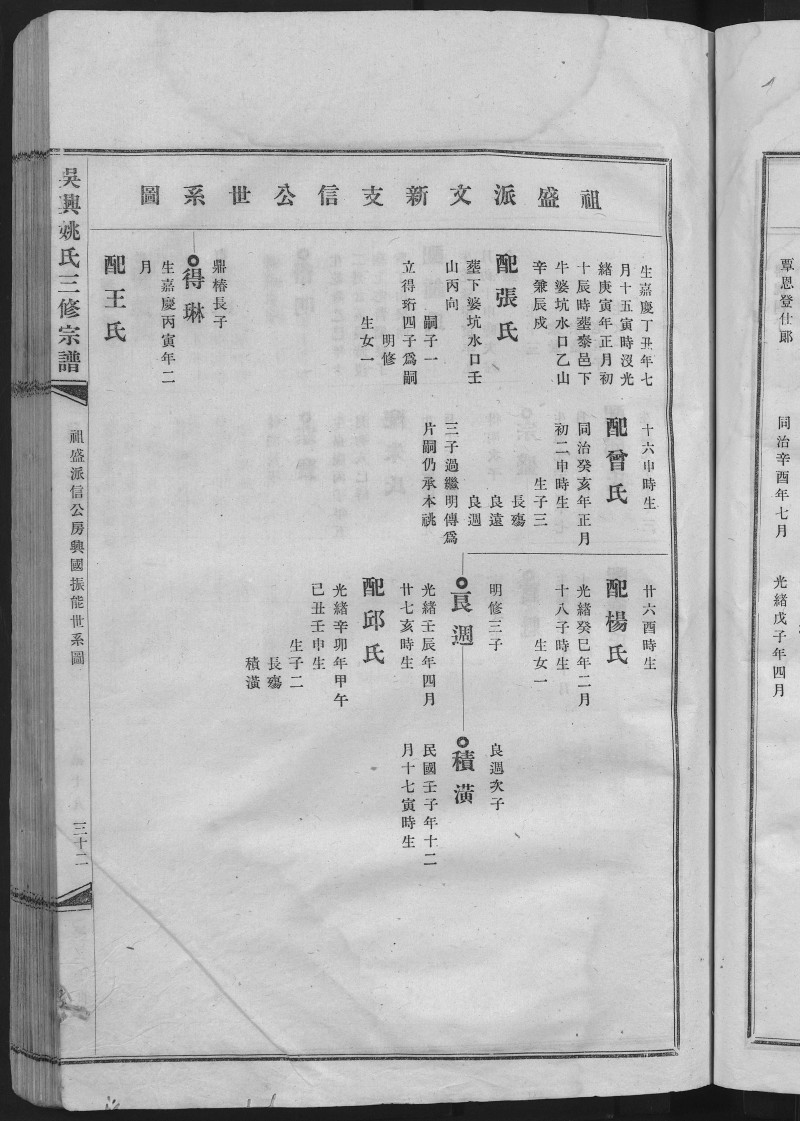 覃恩登仕郞
同治辛酉年七月
光緒戊子年四月
祖盛派文新支信公世系圖
生嘉慶丁丑年七
月十五寅時沒光
緒庚寅年正月初
十辰時塟泰邑下
牛婆坑水口乙山
辛兼辰戍
配張氏
塟下婆坑水口壬
山丙向
嗣子一
立得珩四子爲嗣
明修
生女一
鼎椿長子
得琳
生嘉慶丙寅年二
月
配王氏
十六申時生
配曾氏
同治癸亥年正月
初二申時生
生子三
長殤
良遠
良週
三子過繼明傳爲
片嗣仍承本祧
廿六酉時生
配楊氏
光緒癸巳年二月
十八子時生
生女一
明修三子
良週
光緒壬辰年四月
廿七亥時生
配邱氏
光緒辛卯年甲午
己丑壬申生
生子二
長殤
積潢
良週次子
積潢
民國壬子年十二
月十七寅時生
吳興姚氏三修宗譜
祖盛派信公房興國振能世系圖
三十二